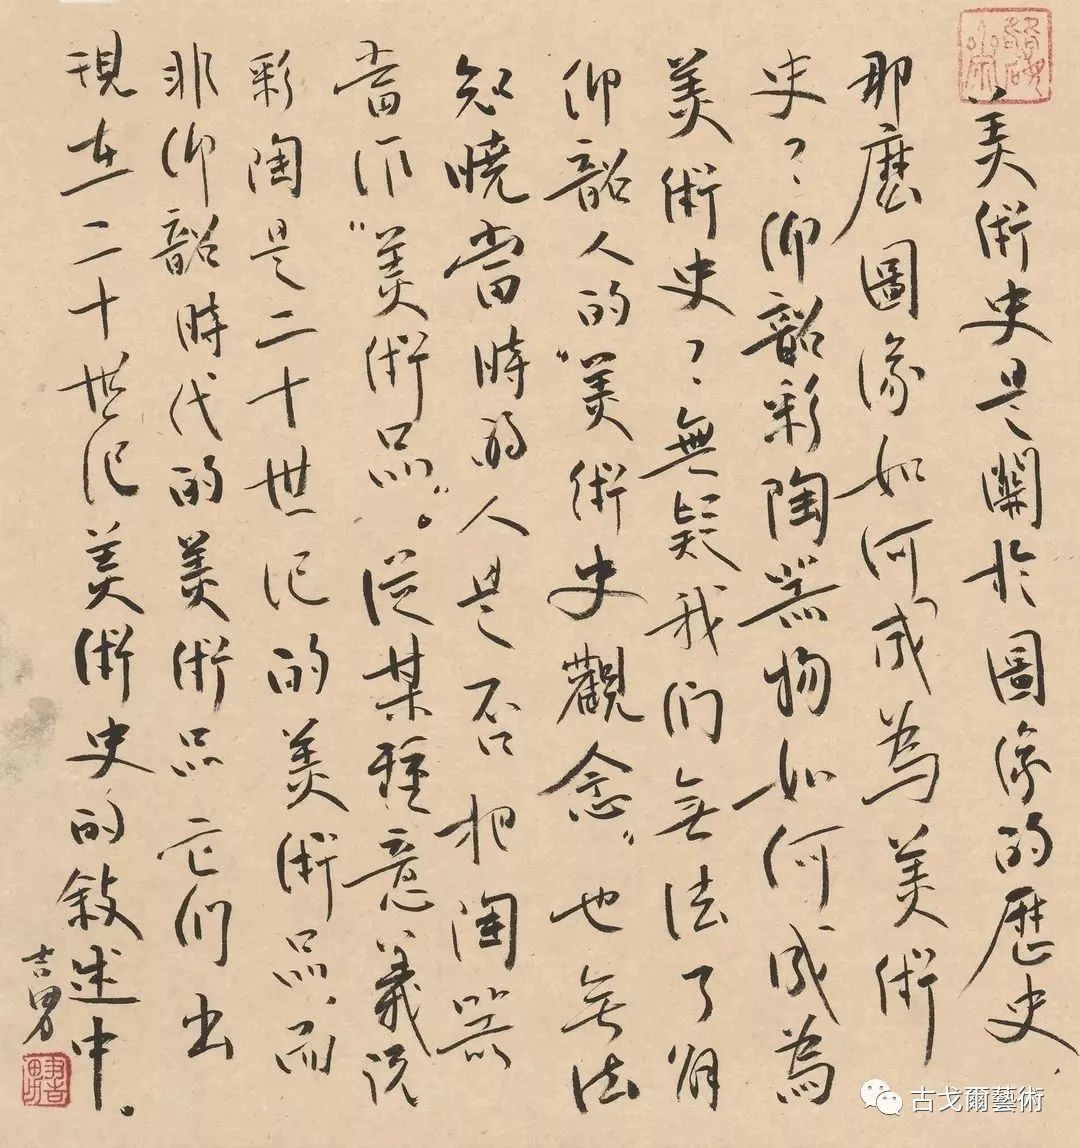 美術史是關於圖像的歷史、
那麼圖像如何成為美術
史？仰韶彩陶器物如何成為
美術史？無疑我们無法了解
仰韶人的“美術史觀念”也無法
知曉當時的人是否把陶器
當作“美術品”。從某種意義說
彩陶是二十世纪的美術品、而
非仰韶時代的美術品它们出
現在二十世纪美術史的敘述中。
吉男
古戈爾藝術